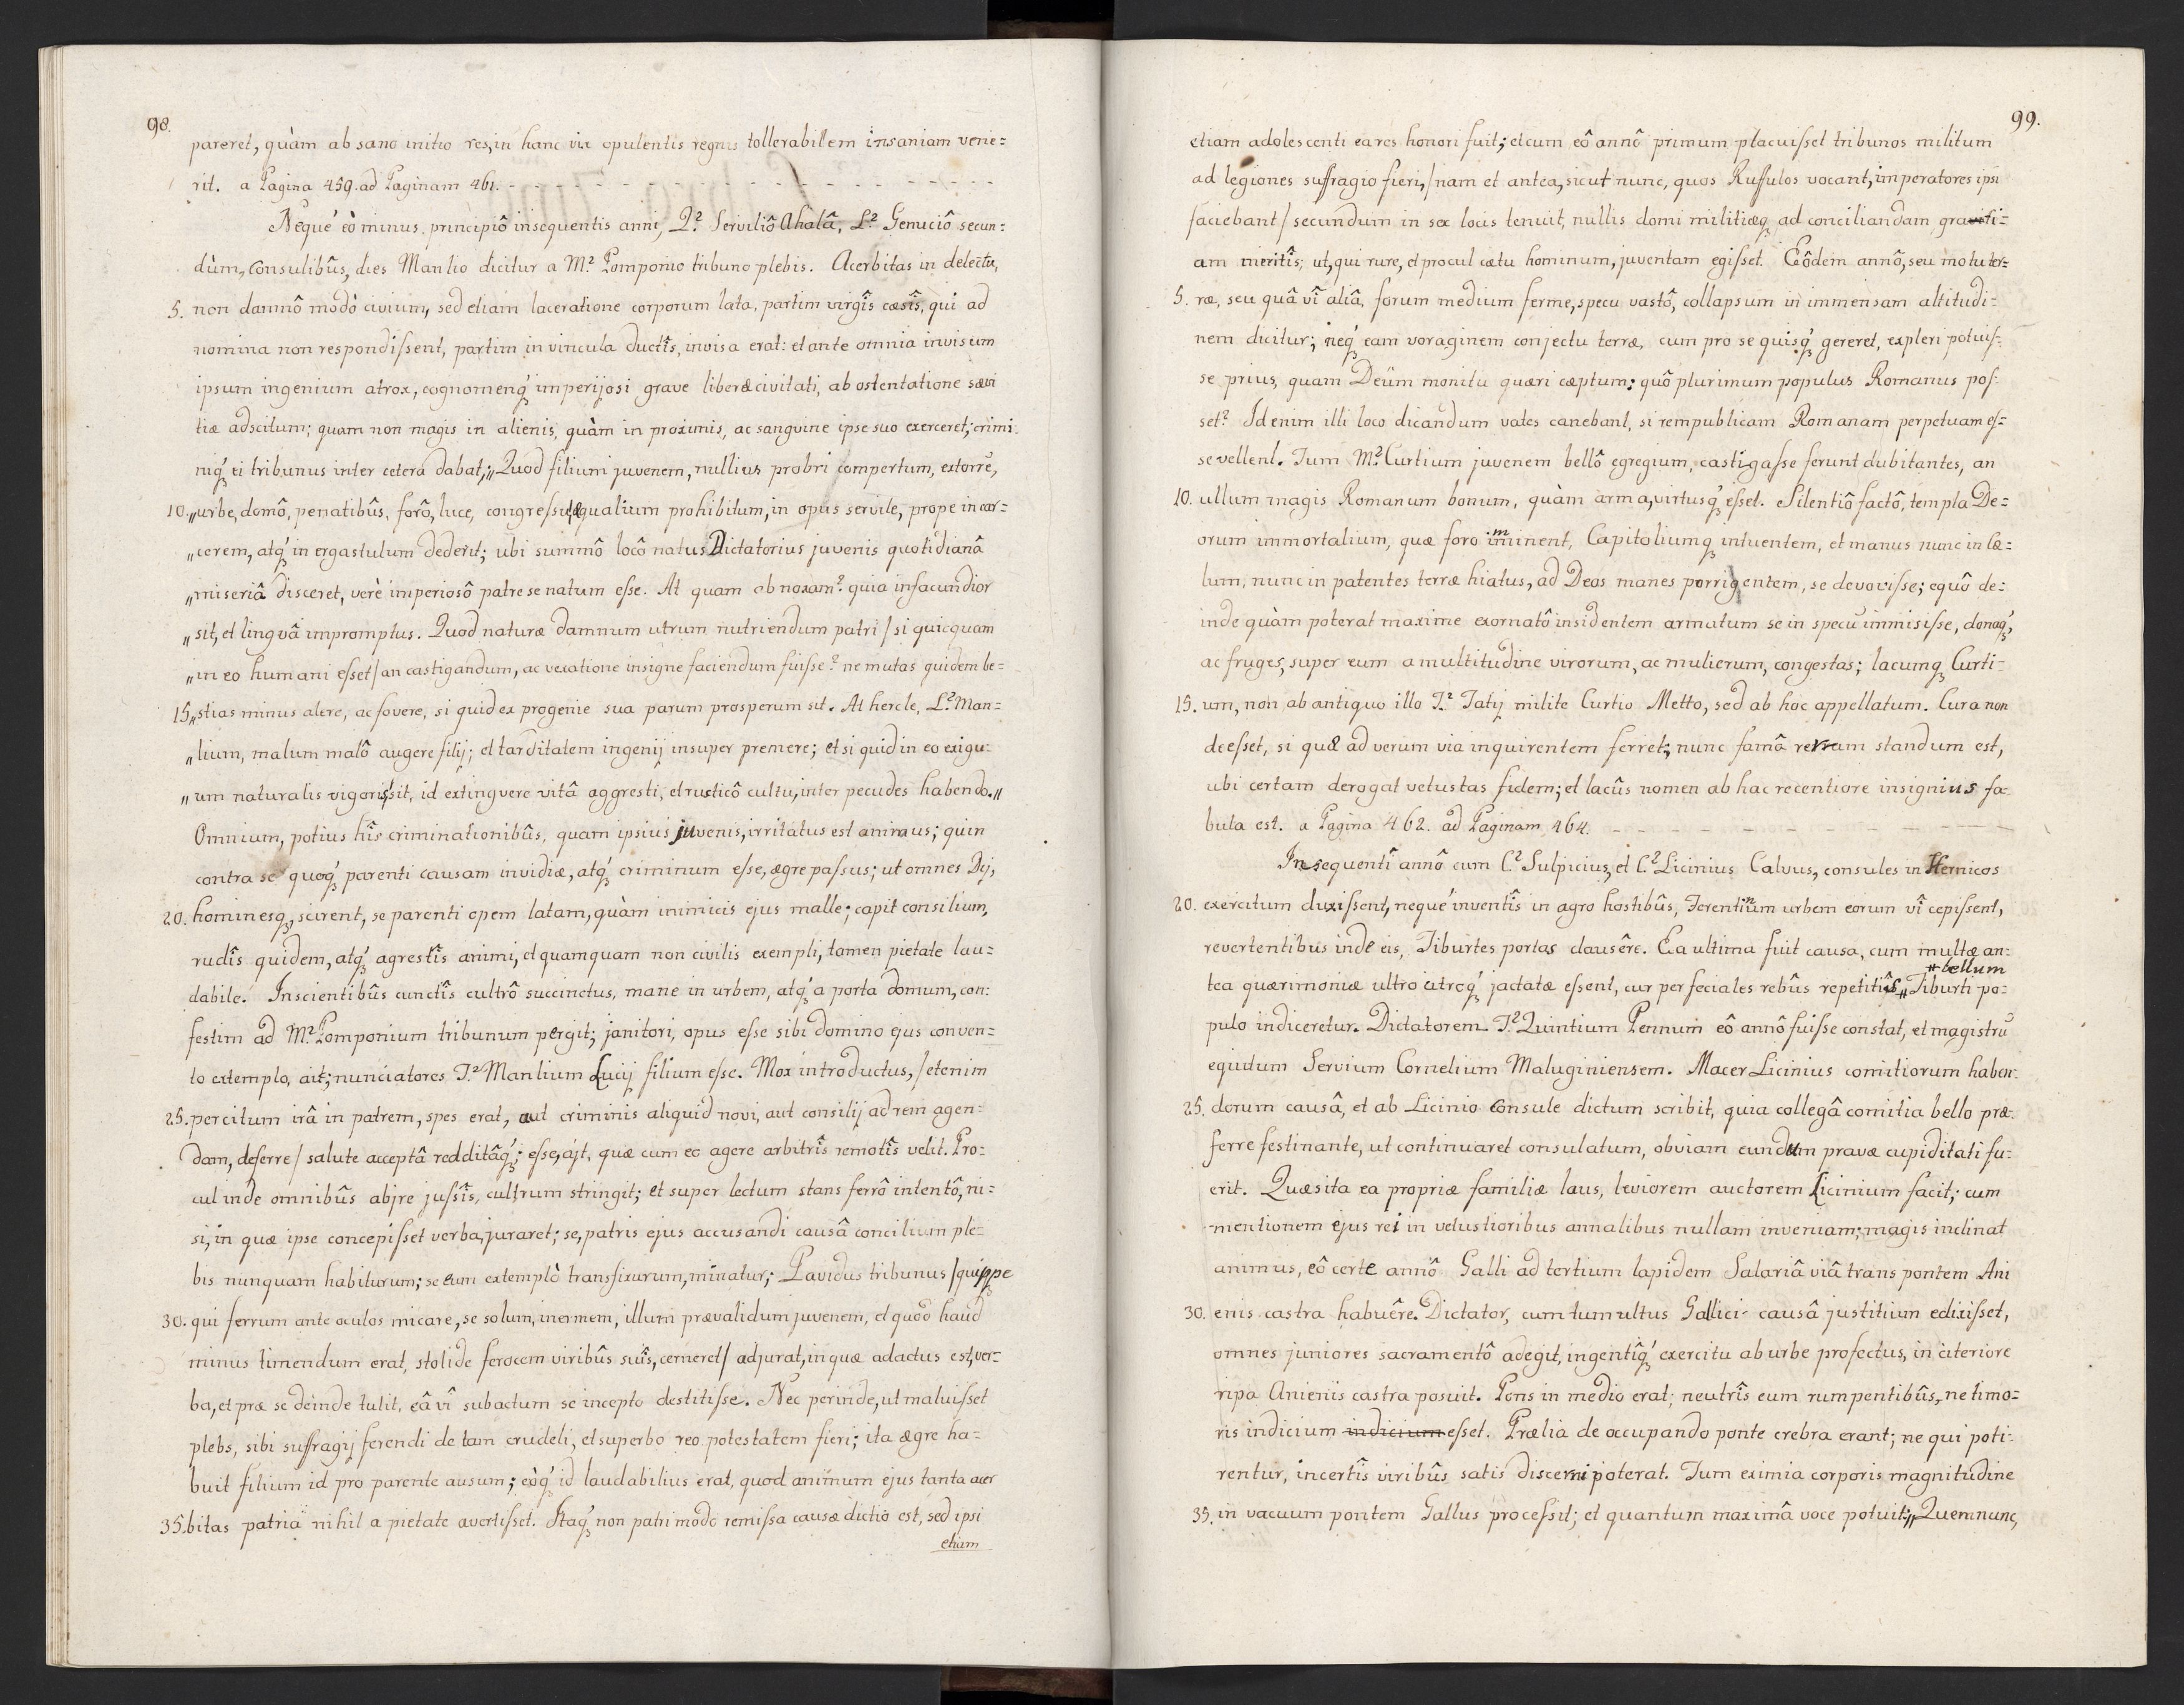 98.
pareret, quàm ab sano initio res, in hanc vix opulentis regnis tollerabilem insaniam vene=
rit. a Pagina 459. ad Paginam 461. - - - - - - - - - - - - - - - - -
Neque eò minus principiô insequentis anni, Q? Serviliô Ahalâ, L? Genuciô secun=
dùm, Consulibûs, dies Manlio dicitur a M? Pomponio tribuno plebis. Acerbitas in delectu,
5. non damnô modò civium, sed etiam laceratione corporum lata, partim virgîs cæsîs, qui ad
nomina non respondissent, partim in vincula ductîs, invisa erat: et ante omnia invisum
ipsum ingenium atrox, cognomenq́ꝫ imperijosi grave liberæ civitati, ab ostentatione sævi
tiæ adscitum; quam non magis in alienis, quàm in proximis, ac sanguine ipse suo exerceret; crimi=
niq́ꝫ ei tribunus inter cetera dabat; „Quod filium juvenem, nullius probri compertum, extorrē,
10. „urbe, domô, penatibûs, forô, luce, congressu æqualium prohibitum, in opus servile, prope in car=
„cerem, atq́ꝫ in ergastulum dederit; ubi summô locô natus Dictatorius juvenis quotidianâ
„miseriâ disceret, verè imperiosô patre se natum esse. At quam ob noxam? quia infacundior
„sit, et lingvâ impromptus. Quod naturæ damnum utrum nutriendum patri / si quicquam
„in eo humani esset / an castigandum, ac vexatione insigne faciendum fuisse? ne mutas quidem be=
15. „stias minus alere, ac fovere, si quid ex progenie sua parum prosperum sit. At hercle, L? Man=
„lium, malum malô augere filij; et tarditatem ingenij insuper premere; et si quid in eo exigu=
„um naturalis vigoris sit, id extinguere vitâ aggresti, et rusticô cultu, inter pecudes habendo.„
Omnium, potius hîs criminationibûs, quam ipsius juvenis, irritatus est animus; quin
contra se quoq́ꝫ parenti causam invidiæ, atq́ꝫ criminum esse, ægre passus; ut omnes Dij,
20. hominesqꝫ scirent, se parenti opem latam, quàm inimicis ejus malle; capit consilium,
rudîs quidem, atq́ꝫ agrestîs animi, et quamquam non civilis exempli, tamen pietate lau=
dabile. Inscientibûs cunctîs cultrô succinctus, mane in urbem, atq́ꝫ a porta domum, con=
festim ad M? Pomponium tribunum pergit; janitori, opus esse sibi domino ejus conven=
to extemplo, ait; nunciatores T? Manlium Lucij filium esse. Mox introductus, / etenim
25. percitum irâ in patrem, spes erat, aut criminis aliquid novi, aut consilij ad rem agen=
dam, deferre / salute acceptâ redditâq́ꝫ; esse, ajt, quæ cum eo agere arbitrîs remotîs velit. Pro=
cul inde omnibûs abjre jussîs, cultrum stringit; et super lectum stans ferrô intentô, ni=
si, in quæ ipse concepisset verba, juraret; se, patris ejus accusandi causâ concilium ple=
bis nunquam habiturum; se eum extemplò transfixurum, minatur; Pavidus tribunus / quippe
30. qui ferrum ante oculos micare, se solum, inermem, illum prævalidum juvenem, et quod haud
minus timendum erat, stolide ferocem viribûs suîs, cerneret / adjurat, in quæ adactus est, ver=
ba, et præ se deinde tulit, eâ vî subactum se incepto destitisse. Nec perinde, ut maluisset
plebs, sibi suffragij ferendi de tam crudeli, et superbo reo potestatem fieri; ita ægre ha=
buit filium id pro parente ausum; eòq́ꝫ id laudabilius erat, quod animum ejus tanta acer
35. bitas patria nihil a pietate avertisset. Itaq́ꝫ non patri modo remissa causæ dictio est, sed ipsi
etiam
99.
etiam adolescenti ea res honori fuit; et cum eô annô primum placuisset tribunos militum
ad legiones suffragio fieri, / nam et antea, sicut nunc, quos Ruffulos vocant, imperatores ipsi
faciebant / secundum in sex locis tenuit, nullis domi militiæqꝫ ad conciliandam grati=
am meritîs; ut, qui rure, et procul cætu hominum, juventam egisset. Eôdem annô, seu motu ter=
5. ræ, seu quâ vî aliâ, forum medium ferme, specu vastô, collapsum in immensam altitudi=
nem dicitur; neq́ꝫ eam voraginem conjectu terræ, cum pro se quisq́ꝫ gereret, expleri potuis=
se prius, quam Deüm monitu quæri cæptum; quô plurimum populus Romanus pos=
set? Id enim illi loco dicandum vates canebant, si rempublicam Romanam perpetuam es=
se vellent. Tum M? Curtium juvenem bellô egregium, castigasse ferunt dubitantes, an
10. ullum magis Romanum bonum, quàm arma, virtusq́ꝫ esset. Silentiô factô, templa De=
orum immortalium, quæ foro imminent, Capitoliumqꝫ intuentem, et manus nunc in cæ=
lum, nunc in patentes terræ hiatus, ad Deos manes porrigentem, se devovisse; equô de=
inde quàm poterat maxime exornatô insidentem armatum se in specū immisisse, donaq́ꝫ,
ac fruges, super eum a multitudine virorum, ac mulierum, congestas; lacumqꝫ Curti=
15. um, non ab antiquo illo T? Tatij milite Curtio Metto, sed ab hoc appellatum. Cura non
deesset, si quæ ad verum via inquirentem ferret; nunc famâ rerum standum est,
ubi certam derogat vetustas fidem; et lacûs nomen ab hac recentiore insignius fa=
bula est. a Pagina 462. ad Paginam 464. - - - - - - - - - - -
Insequentî annô cum C? Sulpicius, et C? Licinius Calvus, consules in Hernicos
20. exercitum duxissent, neque inventîs in agro hostibûs, Ferentinum urbem eorum vî cepissent,
revertentibus inde eis, Tiburtes portas clausêre. Ea ultima fuit causa, cum multæ an=
„bellum
tea quærimoniæ ultro citroq́ꝫ jactatæ essent, cur per feciales rebûs repetitîs „Tiburti po=
pulo indiceretur. Dictatorem T? Quintium Pennum eô annô fuisse constat, et magistrū
equitum Servium Cornelium Maluginiensem. Macer Licinius comitiorum haben=
25. dorum causâ, et ab Licinio Consule dictum scribit, quia collegâ comitia bello præ=
ferre festinante, ut continuaret consulatum, obviam eundum pravæ cupiditati fu=
erit. Quæsita ea propriæ familiæ laus, leviorem auctorem Licinium facit; cum
mentionem ejus rei in vetustioribus annalibus nullam inveniam; magis inclinat
animus, eô certe annô Galli ad tertium lapidem Salariâ viâ trans pontem Ani
30. enis castra habuêre. Dictator, cum tumultus Gallici causâ justitium edixisset,
omnes juniores sacramentô adegit, ingentîq́ꝫ exercitu ab urbe profectus, in citeriore
ripa Anienis castra posuit. Pons in medio erat; neutrîs eum rumpentibûs, ne timo=
ris indicium indicium esset. Prælia de occupando ponte crebra erant; ne qui poti=
rentur, incertîs viribûs satis discerni poterat. Tum eximia corporis magnitudine
35. in vacuum pontem Gallus processit; et quantum maximâ voce potuit; „Quem nunc,